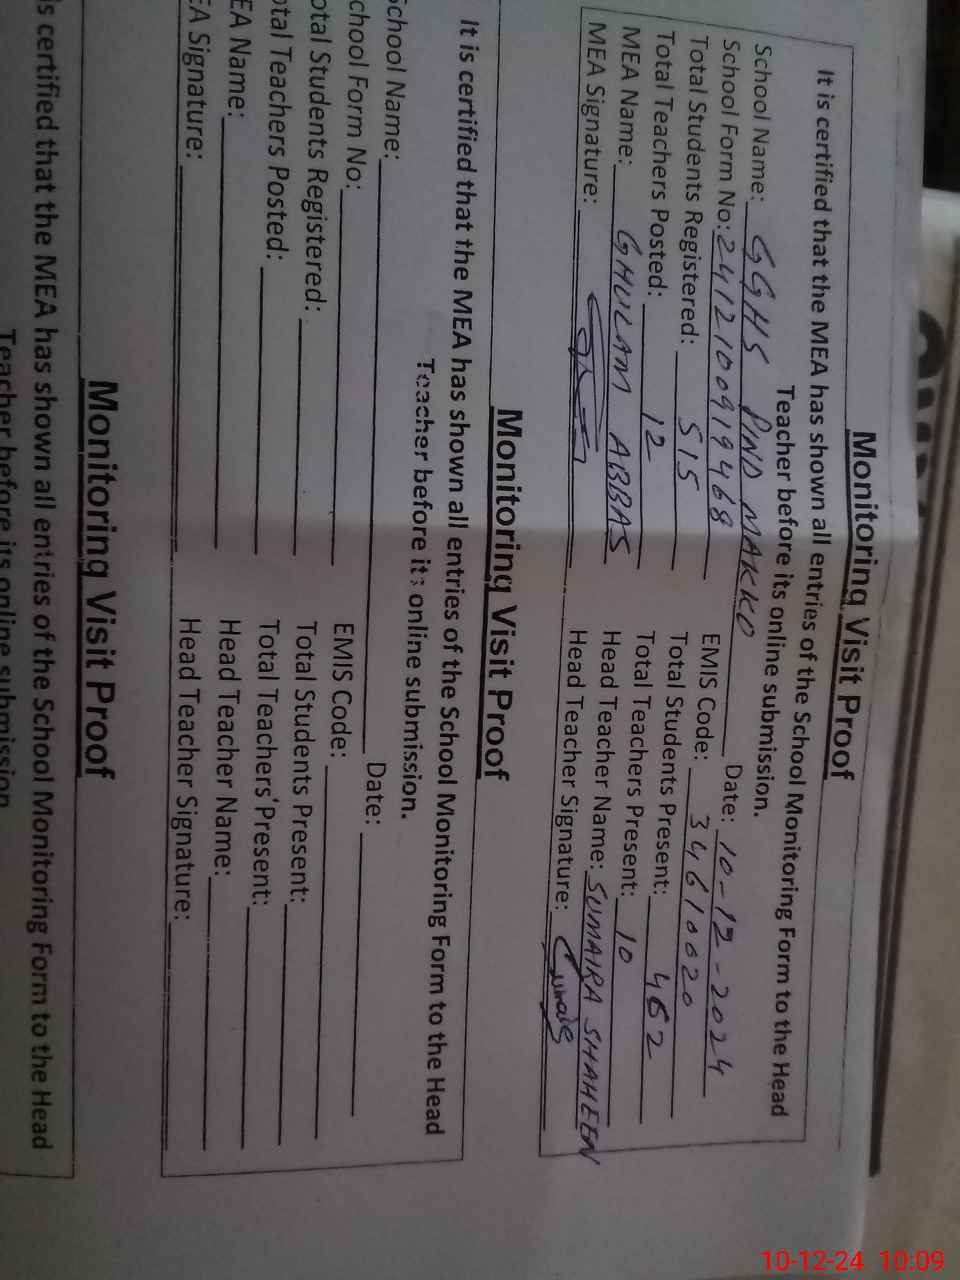 Monitoring Visit Proof
It is certified that the MEA has shown all entries of the School Monitoring Form to the Head
Teacher before its online submission.
School Name: GGHS PIND MAKKO Date: 10-12-2024
School Form No: 2412100919468 EMIS Code: 34610020
Total Students Registered: 515 Total Students Present: 462
Total Teachers Posted: 12 Total Teachers Present: 10
MEA Name: GHULAM ABBAS Head Teacher Name: SUMAIRA SHAHEEN
MEA Signature: Head Teacher Signature:
Monitoring Visit Proof
It is certified that the MEA has shown all entries of the School Monitoring Form to the Head
Teacher before its online submission.
School Name: Date:
chool Form No: EMIS Code:
otal Students Registered: Total Students Present:
otal Teachers Posted: Total Teachers'Present:
EA Name: Head Teacher Name:
EA Signature: Head Teacher Signature:
Monitoring Visit Proof
is certified that the MEA has shown all entries of the School Monitoring Form to the Head
Teacher before its online submission
10-12-24 10:09